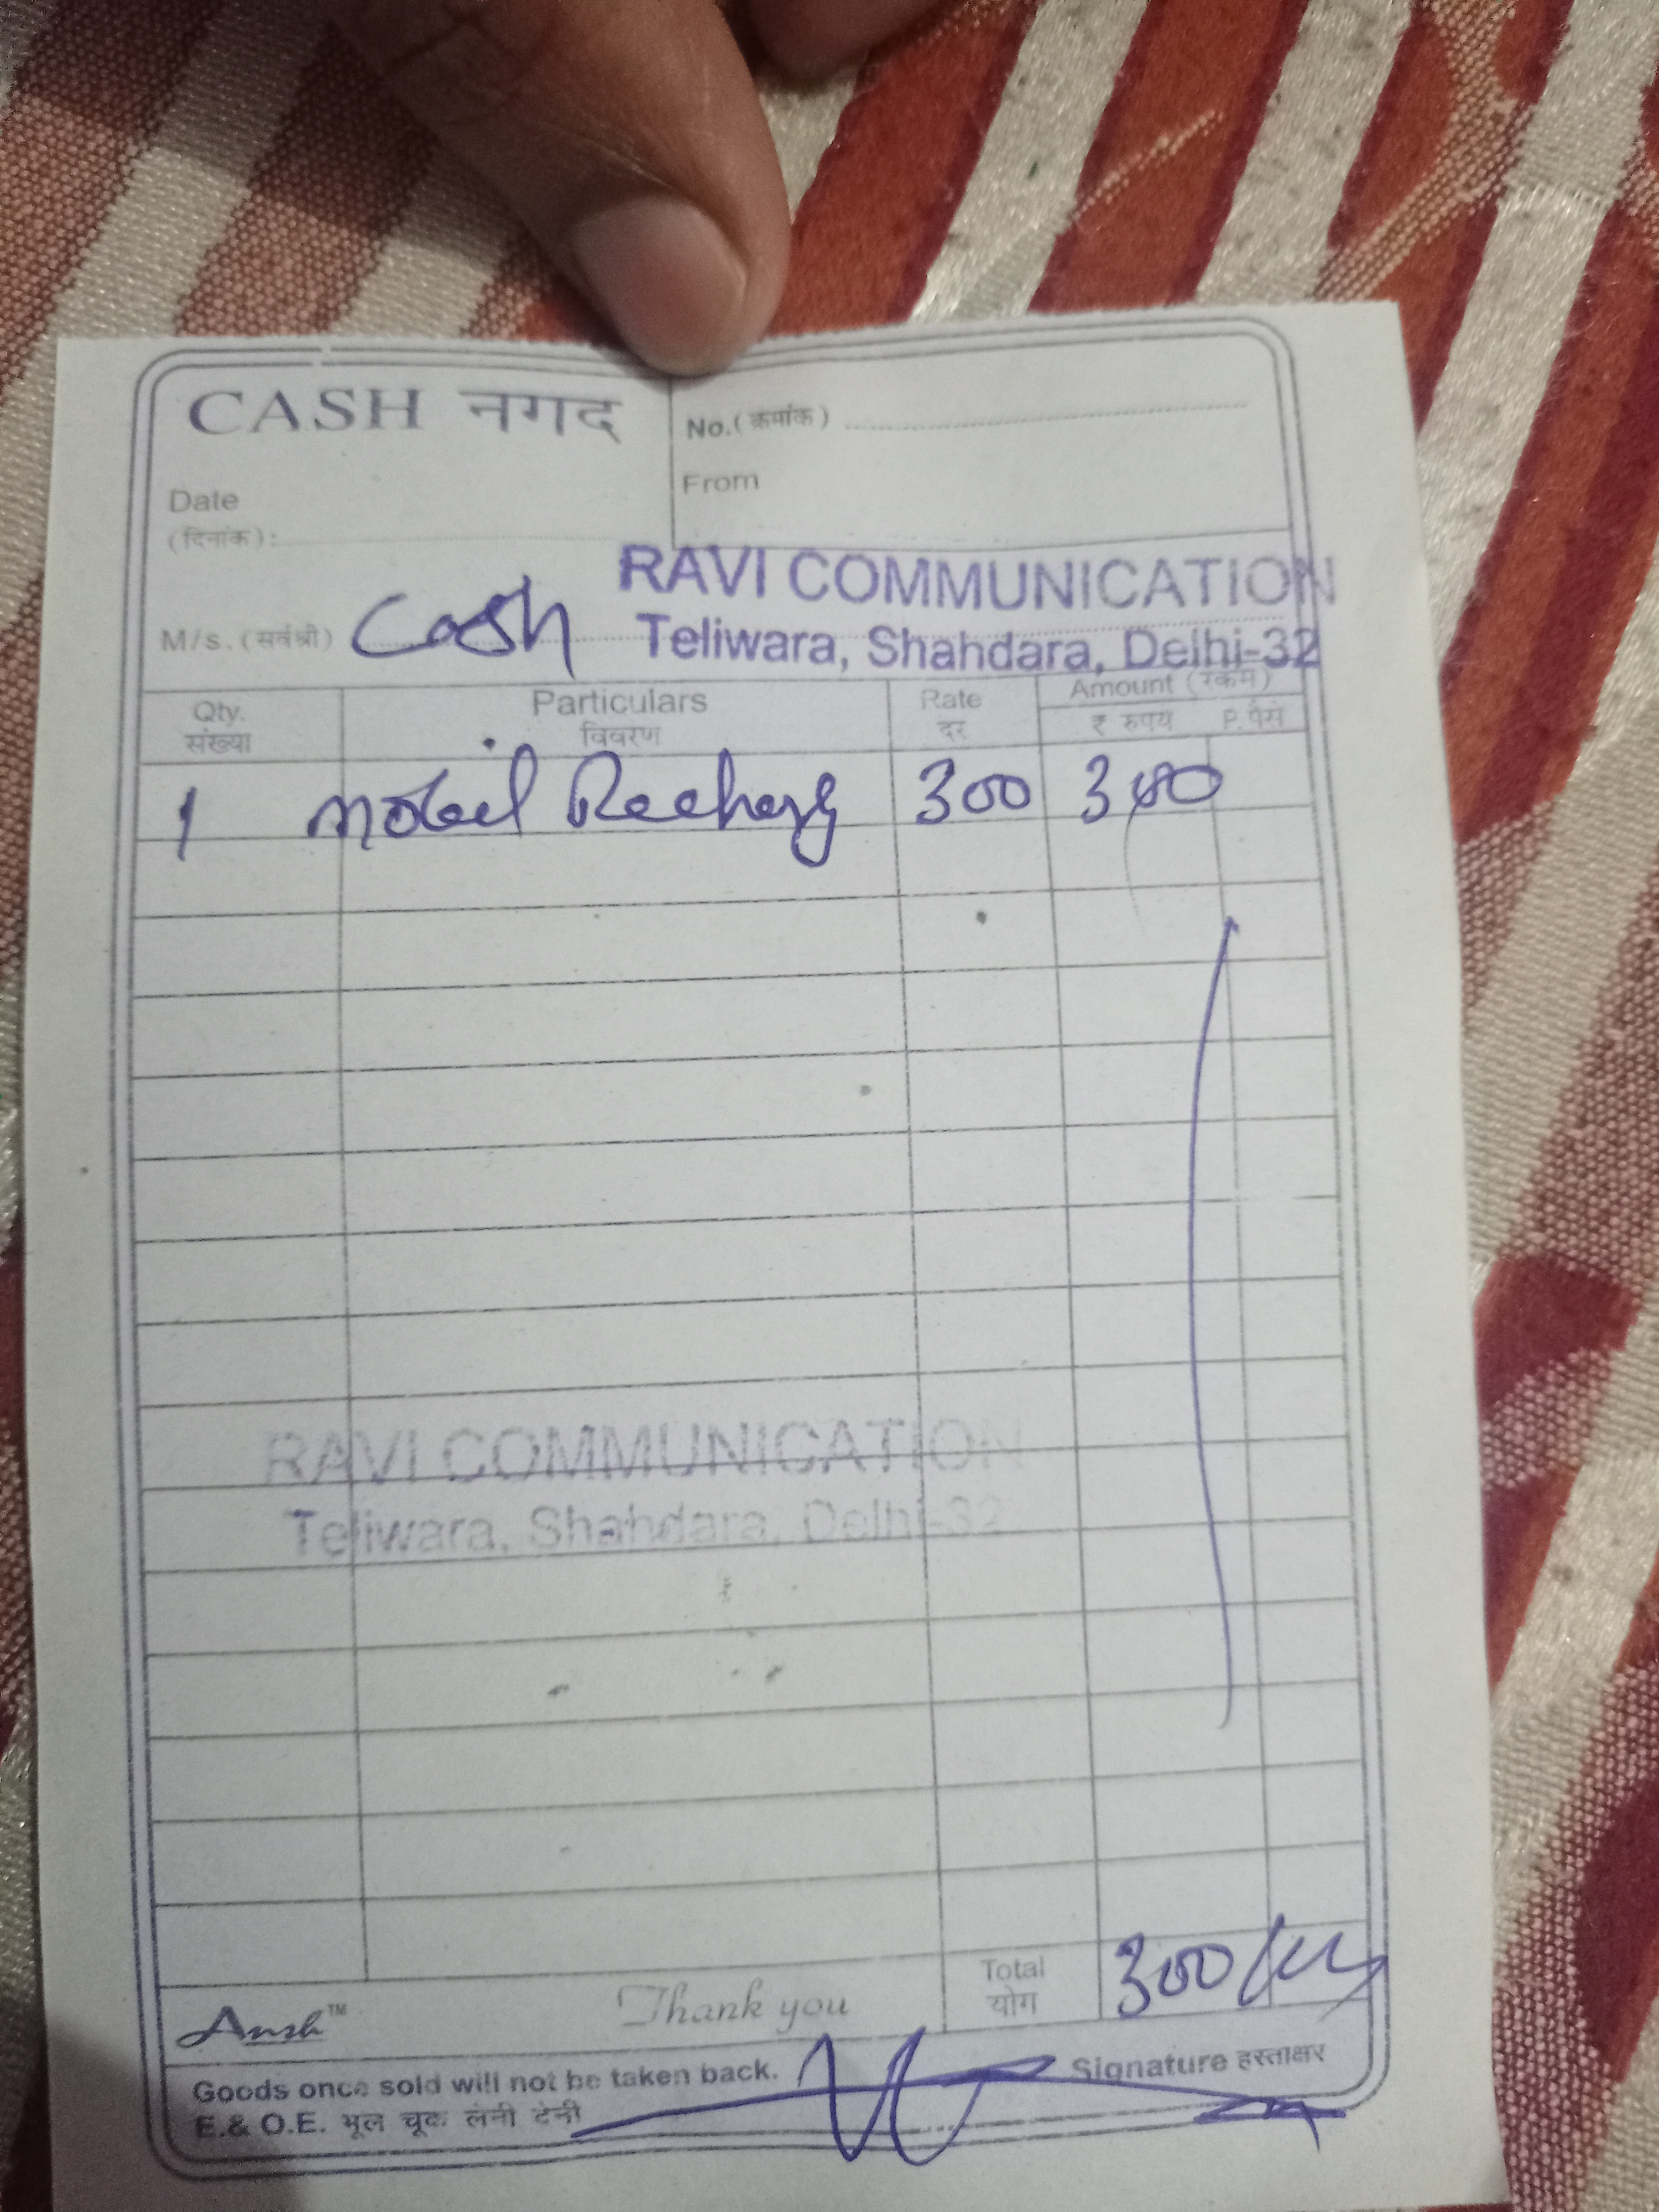 CASH नगद
No. (क्रमांक)
From
Date
(दिनांक):
RAVI COMMUNICATION
Teliwara, Shahdara, Delhi-32
M/s. (सर्वश्री) Cash
Qty. संख्या Particulars विवरण Rate दर Amount (रकम) ₹ रुपय P. पैसे
1 Mobil Recharg 300 300
RAVI COMMUNICATION
Teliwara, Shahdara, Delhi-32
Total योग 300/
Ansh™ Thank you
Goods once sold will not be taken back. Signature हस्ताक्षर
E.& O.E. भूल चूक लेनी देनी